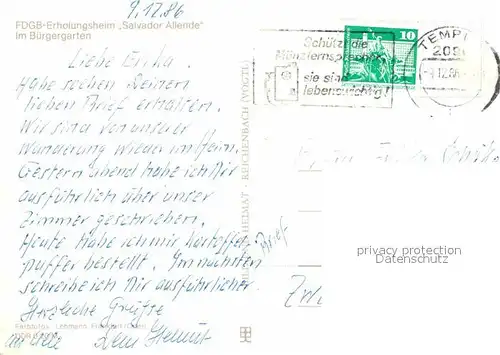 9.12.86
FDGB-Erholungsheim „Salvador Allende"
Im Bürgergarten
Liebe Erika.
Habe soeben Deinen
lieben Brief erhalten.
Wir sind von unserer
Wanderung wieder im Heim.
Gestern abend habe ich Dir
ausführlich über unser
Zimmer geschrieben.
Heute habe ich mir Kartoffel-
puffer bestellt. Im nächsten Brief
schreibe ich Dir ausführlicher.
Herzliche Grüße
Dein Helmut
BILD HEIMAT REICHENBACH (VOGTL)
Schützt die
Münzfernsprecher
sie sind
lebenswichtig!
10
TEMPL
2090
-9.12.86
privacy protection
Datenschutz